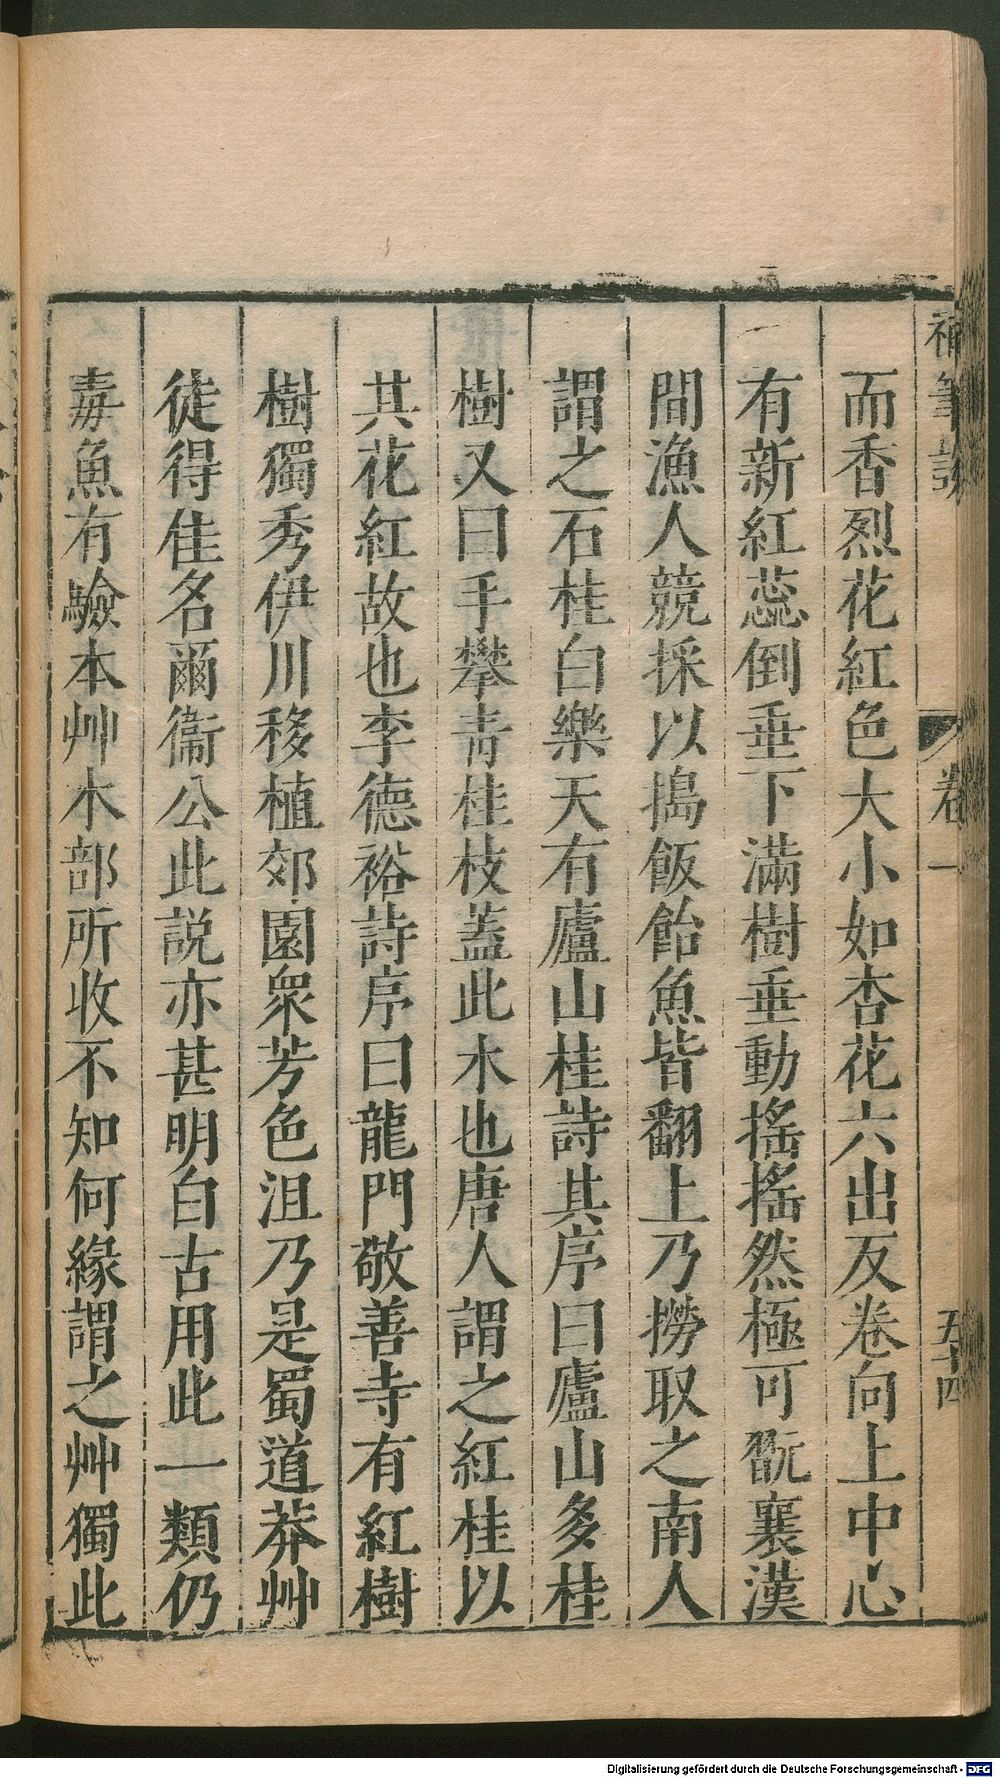 補筆談
卷一
五十四
而香烈花紅色大小如杏花六出反卷向上中心
有新紅蕊倒垂下滿樹垂動搖搖然極可翫襄漢
間漁人競採以搗飯飴魚皆翻上乃撈取之南人
謂之石桂白樂天有廬山桂詩其序曰廬山多桂
樹又曰手攀青桂枝蓋此木也唐人謂之紅桂以
其花紅故也李德裕詩序曰龍門敬善寺有紅樹
樹獨秀伊川移植郊園衆芳色沮乃是蜀道莽艸
徒得佳名爾衞公此説亦甚明白古用此一類仍
毒魚有驗本艸木部所收不知何緣謂之艸獨此
Digitalisierung gefördert durch die Deutsche Forschungsgemeinschaft - DFG